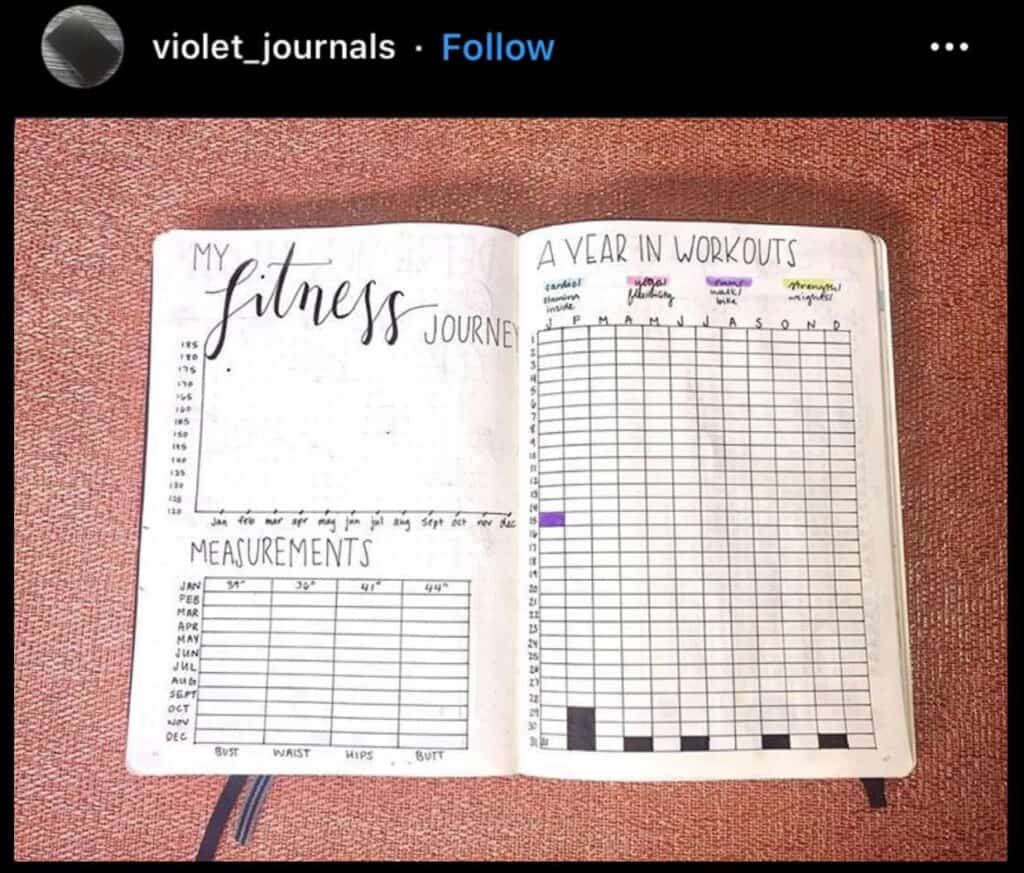 violet_journals · Follow
MY
fitness
JOURNEY
185
180
175
170
165
160
155
150
145
140
135
130
125
120
Jan feb mar apr may jun jul aug sept oct nov dec
MEASUREMENTS
JAN 39" 36" 41" 44"
FEB
MAR
APR
MAY
JUN
JUL
AUG
SEPT
OCT
NOV
DEC
BUST WAIST HIPS BUTT
A YEAR IN WORKOUTS
cardio/ yoga/ strength/
flexibility walk/ weights/
inside bike
J F M A M J J A S O N D
1
2
3
4
5
6
7
8
9
10
11
12
13
14
15
16
17
18
19
20
21
22
23
24
25
26
27
28
29
30
31